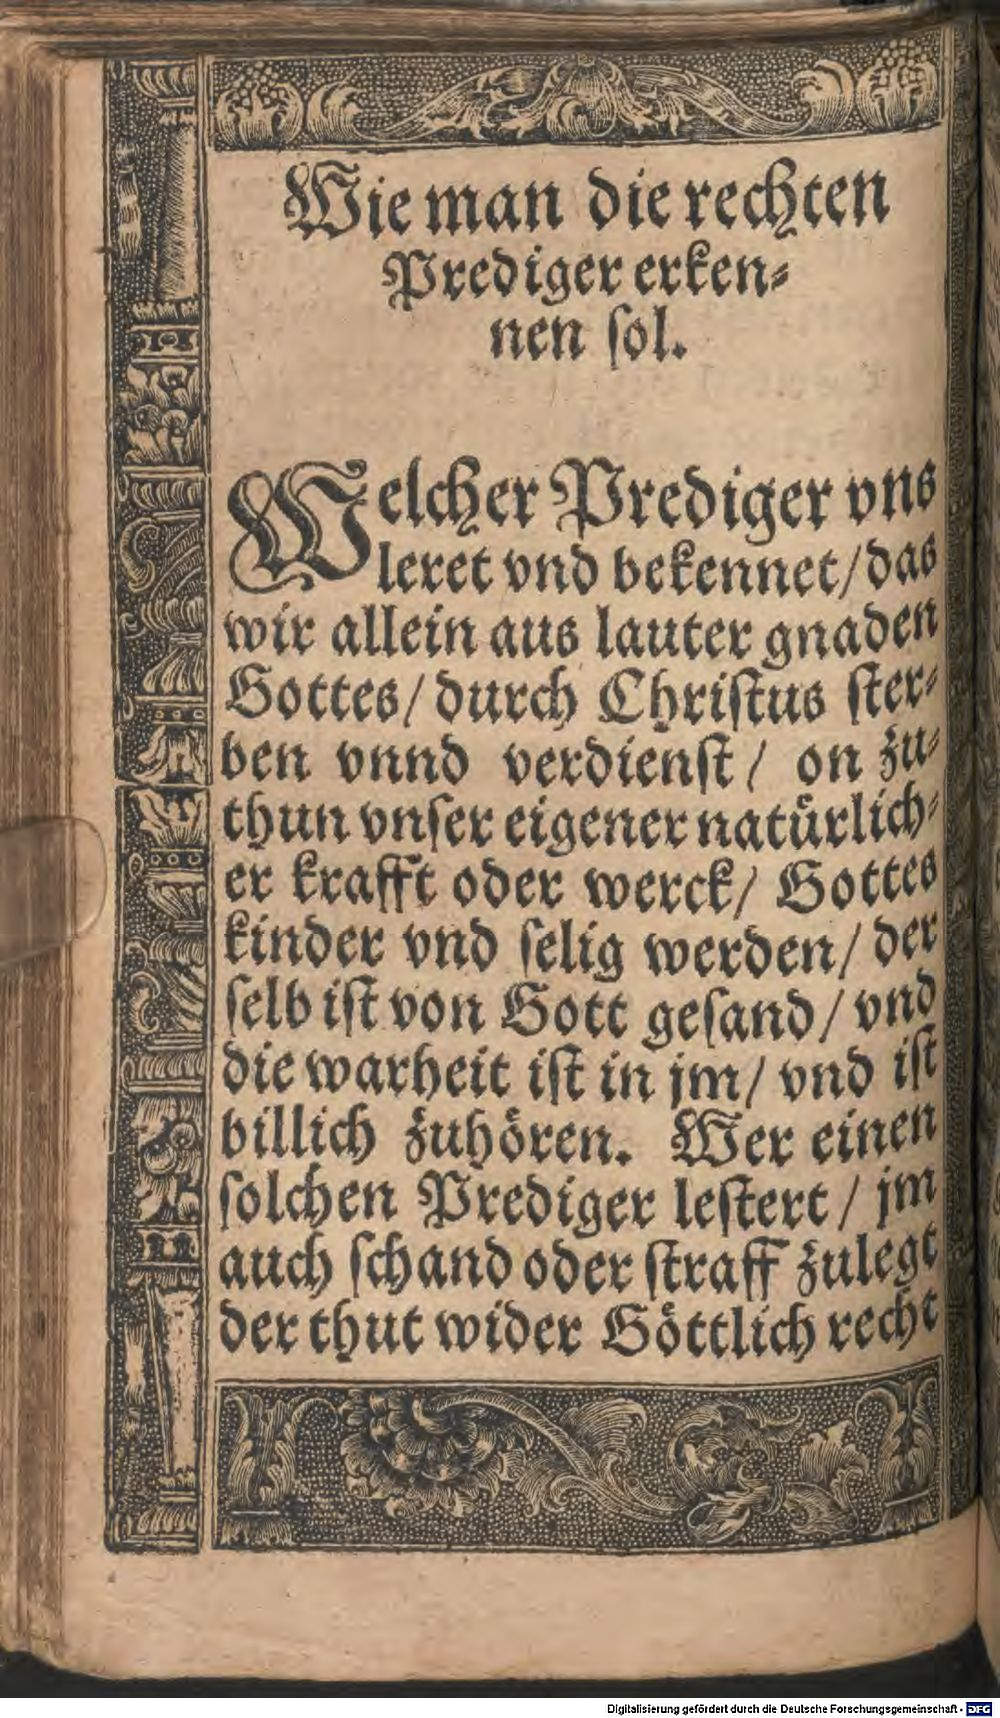 Wie man die rechten
Prediger erken⸗
nen ſol.
Welcher Prediger vns
leret vnd bekennet/das
wir allein aus lauter gnaden
Gottes/durch Chriſtus ſter⸗
ben vnnd verdienſt/ on zu⸗
thun vnſer eigener natuͤrlich⸗
er krafft oder werck/ Gottes
kinder vnd ſelig werden/ der
ſelb iſt von Gott geſand/ vnd
die warheit iſt in jm/ vnd iſt
billich zuhoͤren. Wer einen
ſolchen Prediger leſtert/ jm
auch ſchand oder ſtraff zulegt
der thut wider Goͤttlich recht
Digitalisierung gefördert durch die Deutsche Forschungsgemeinschaft - DFG